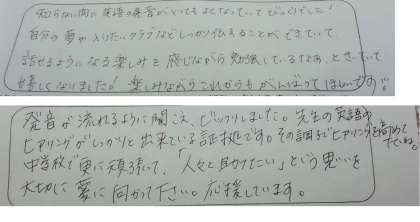 知らない間に英語の発音がとってもよくなっていてびっくりでした!
自分の夢や入りたいクラブなどしっかり伝えることができていて、
話せるようになる楽しみを感じながら勉強しているなあ、と思っていて
嬉しくなりました!楽しみながらこれからもがんばってほしいです!!
発音が流れるように聞こえ、ビックリしました。先生の英語の
ヒアリングがしっかりと出来ている証拠です。その調子でヒアリングを高めて下さいね。
中学校で更に頑張って、「人々を助けたい」という思いを
大切に夢に向かって下さい。応援しています。